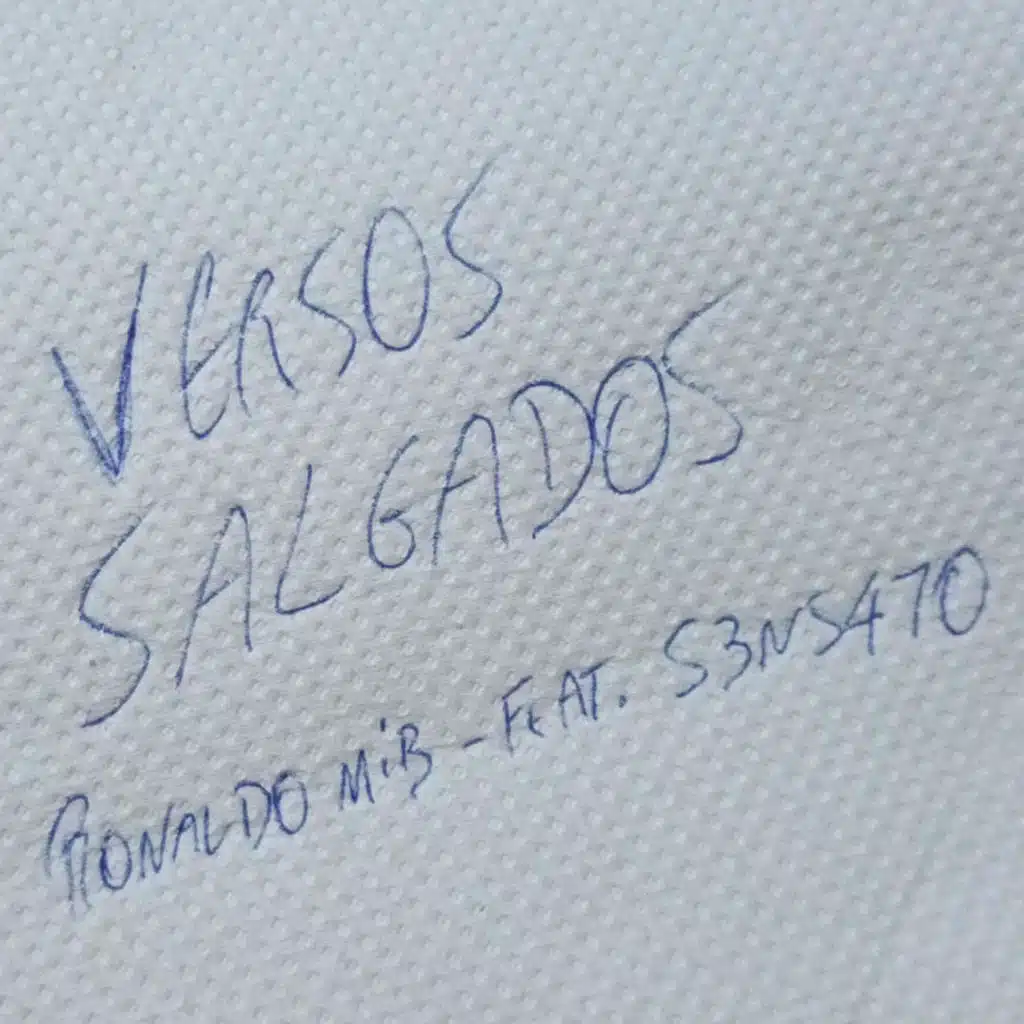 VERSOS
SALGADOS
RONALDO MiB - FEAT. S3NS470